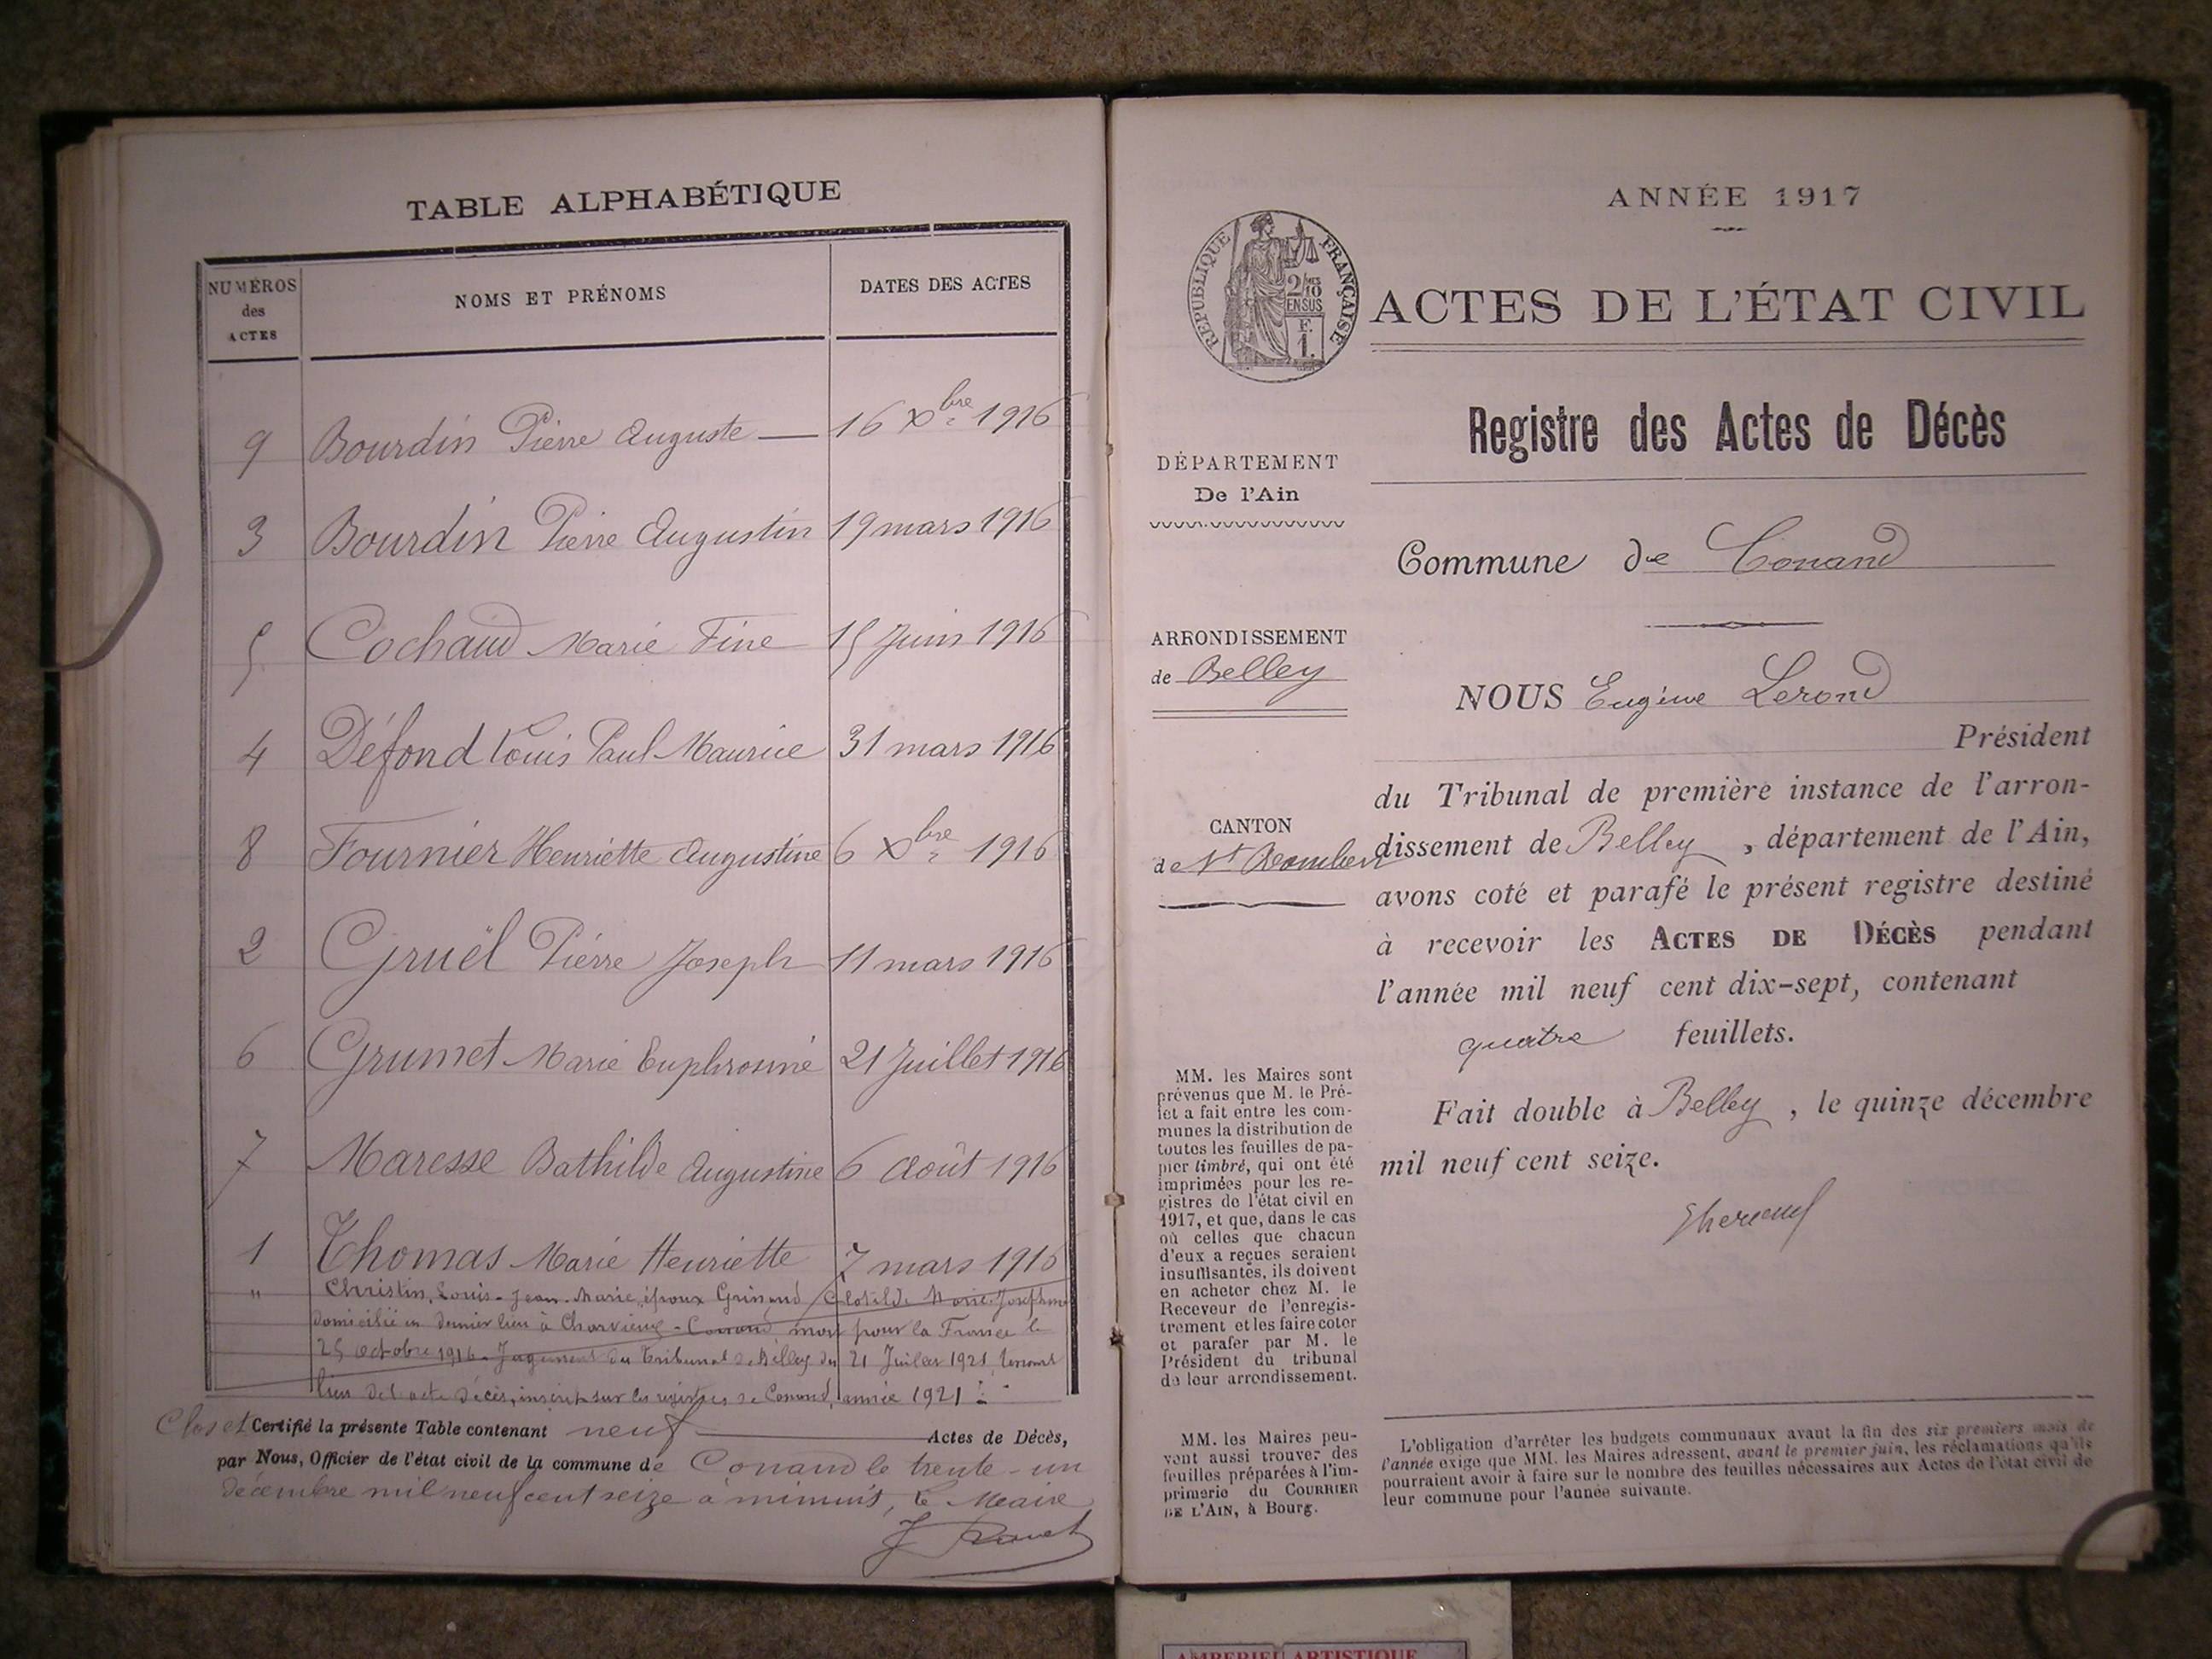 TABLE ALPHABÉTIQUE
NUMÉROS
des
ACTES
NOMS ET PRÉNOMS
DATES DES ACTES
9 Bourdin Pierre Auguste — 16 Xbre 1916
3 Bourdin Pierre Augustin 19 mars 1916
5 Cochaud Marie Fine 15 Juin 1916
4 Défond Louis Paul Maurice 31 mars 1916
8 Fournier Henriette Augustine 6 Xbre 1916
2 Gruël Pierre Joseph 11 mars 1916
6 Grumet Marie Euphrosine 21 Juillet 1916
7 Maresse Bathilde Augustine 6 Août 1916
1 Thomas Marie Henriette 7 mars 1916
" Christin, Louis-Jean-Marie, époux Grinand Clotilde Marie-Josephine
domicilié en dernier lieu à Charvieux - Conand, mort pour la France le
25 octobre 1916. Jugement du Tribunal de Belley du 21 Juillet 1921, tenant
lieu de l'acte décès, inscrit sur les registres de Conand, année 1921 :-
Clos et Certifié la présente Table contenant neuf Actes de Décès,
par Nous, Officier de l'état civil de la commune de Conand le trente-un
décembre mil neuf cent seize à minuit, Le Maire
ANNÉE 1917
RÉPUBLIQUE FRANÇAISE
2/10 EN SUS
F.
1.
ACTES DE L'ÉTAT CIVIL
Registre des Actes de Décès
DÉPARTEMENT
De l'Ain
Commune de Conand
ARRONDISSEMENT
de Belley
NOUS Eugène Lerond
Président
du Tribunal de première instance de l'arron-
dissement de Belley, département de l'Ain,
avons coté et parafé le présent registre destiné
à recevoir les ACTES DE DÉCÈS pendant
l'année mil neuf cent dix-sept, contenant
quatre feuillets.
Fait double à Belley, le quinze décembre
mil neuf cent seize.
CANTON
de St Rambert
MM. les Maires sont
prévenus que M. le Pré-
fet a fait entre les com-
munes la distribution de
toutes les feuilles de pa-
pier timbré, qui ont été
imprimées pour les re-
gistres de l'état civil en
1917, et que, dans le cas
où celles que chacun
d'eux a reçues seraient
insuffisantes, ils doivent
en acheter chez M. le
Receveur de l'enregis-
trement et les faire coter
et parafer par M. le
Président du tribunal
de leur arrondissement.
MM. les Maires peu-
vent aussi trouver des
feuilles préparées à l'im-
primerie du COURRIER
DE L'AIN, à Bourg.
L'obligation d'arrêter les budgets communaux avant la fin des six premiers mois de
l'année exige que MM. les Maires adressent, avant le premier juin, les réclamations qu'ils
pourraient avoir à faire sur le nombre des feuilles nécessaires aux Actes de l'état civil de
leur commune pour l'année suivante.
AMBERIEU ARTISTIQUE